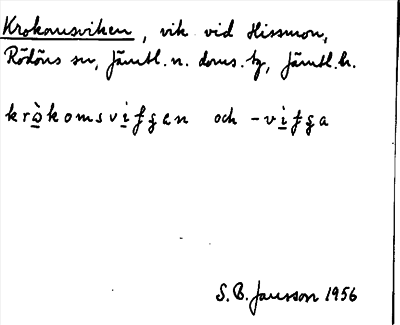 Krokomsviken, vik vid Hissmon,
Rödöns sn, Jämtl. n. doms. tg, Jämtl. l.
kròkomsvifgen och -vifga
S. B. Jansson 1956